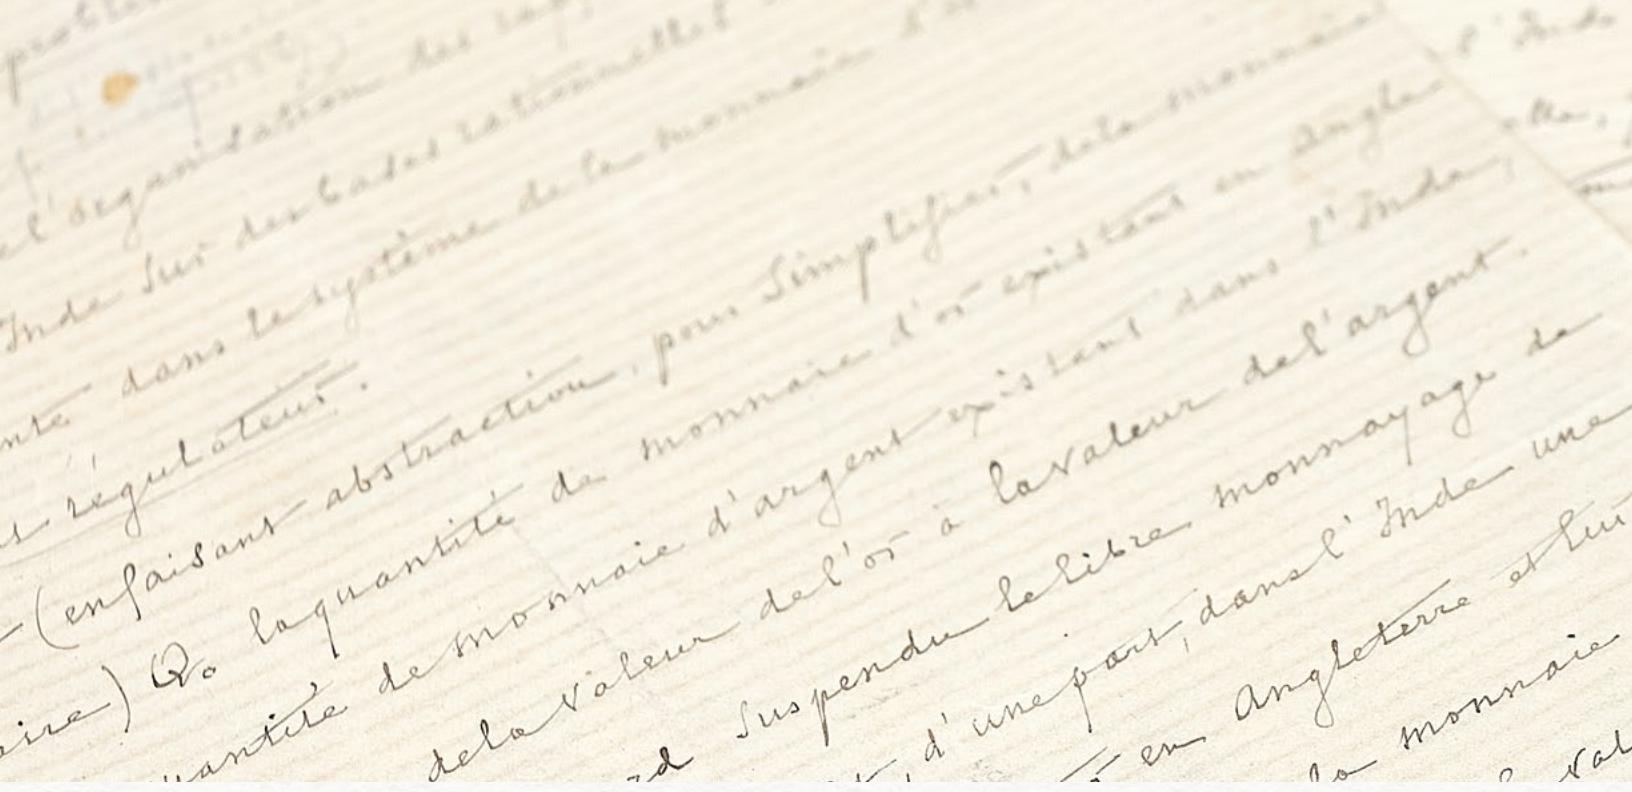 l'organisation des
Inde sur des bases rationnelles
dans le système de la monnaie
régulateur.
(en faisant abstraction, pour simplifier, de la monnaie
oire) Qo la quantité de monnaie d'or existant en Angle
uantité de monnaie d'argent existant dans l'Inde,
de la valeur de l'or à la valeur de l'argent.
rd suspendu le libre monnayage de
, d'une part, dans l'Inde une
en Angleterre et lui
la monnaie
val
l'Inde